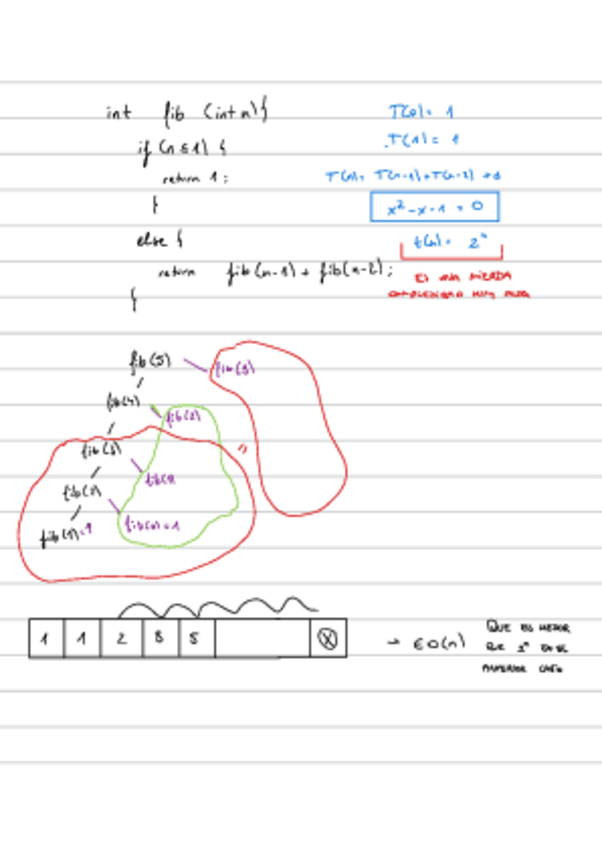 int fib (int n) {
T(0) = 1
if (n ≤ 1) {
T(1) = 1
return 1;
T(n) = T(n-1) + T(n-2) + 1
}
x² - x - 1 = 0
else {
t(n) = 2ⁿ
return fib(n-1) + fib(n-2);
ES UNA MIERDA
COMPLEJIDAD MUY MALA
}
fib(5)
fib(3)
fib(4)
fib(2)
fib(3)
fib(2)
fib(1)
fib(1) = 1
1 1 2 3 5 X
→ ∈ O(n)
QUE ES MEJOR
QUE 2ⁿ EN EL
ANTERIOR CASO